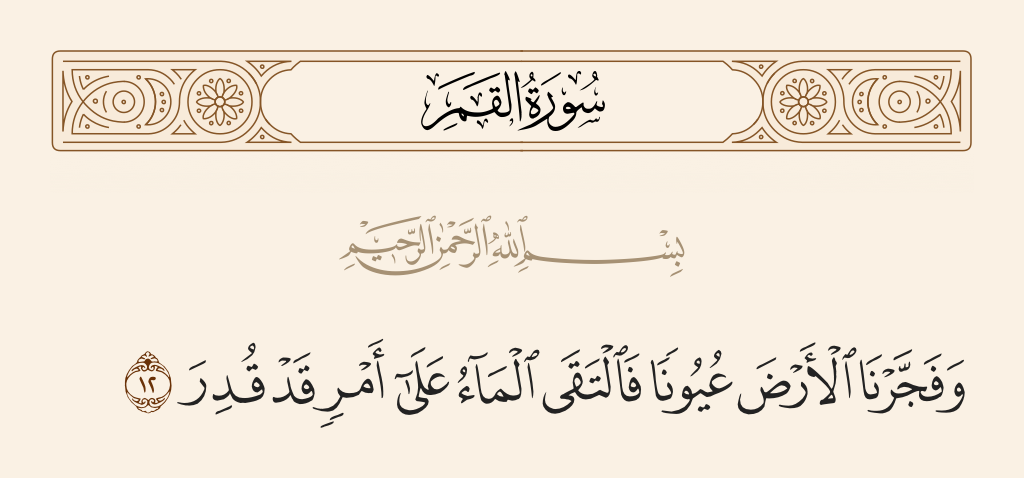 سُورَةُ القَمَرِ
بِسْمِ ٱللَّهِ ٱلرَّحْمَٰنِ ٱلرَّحِيمِ
وَفَجَّرْنَا ٱلْأَرْضَ عُيُونًا فَٱلْتَقَى ٱلْمَاءُ عَلَىٰٓ أَمْرٍ قَدْ قُدِرَ ١٢